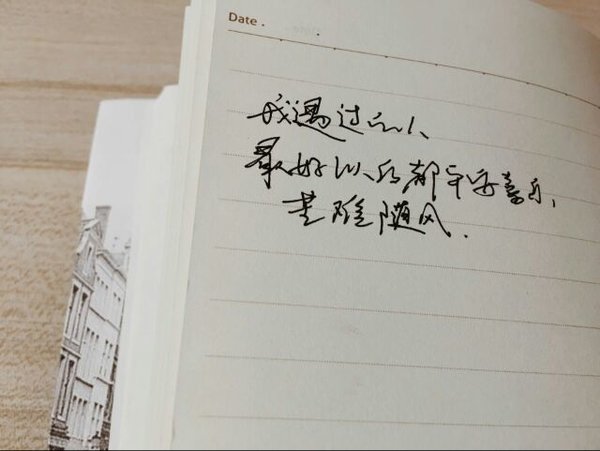 Date.
我遇过的人、
最好以后都平安喜乐、
苦难随风.